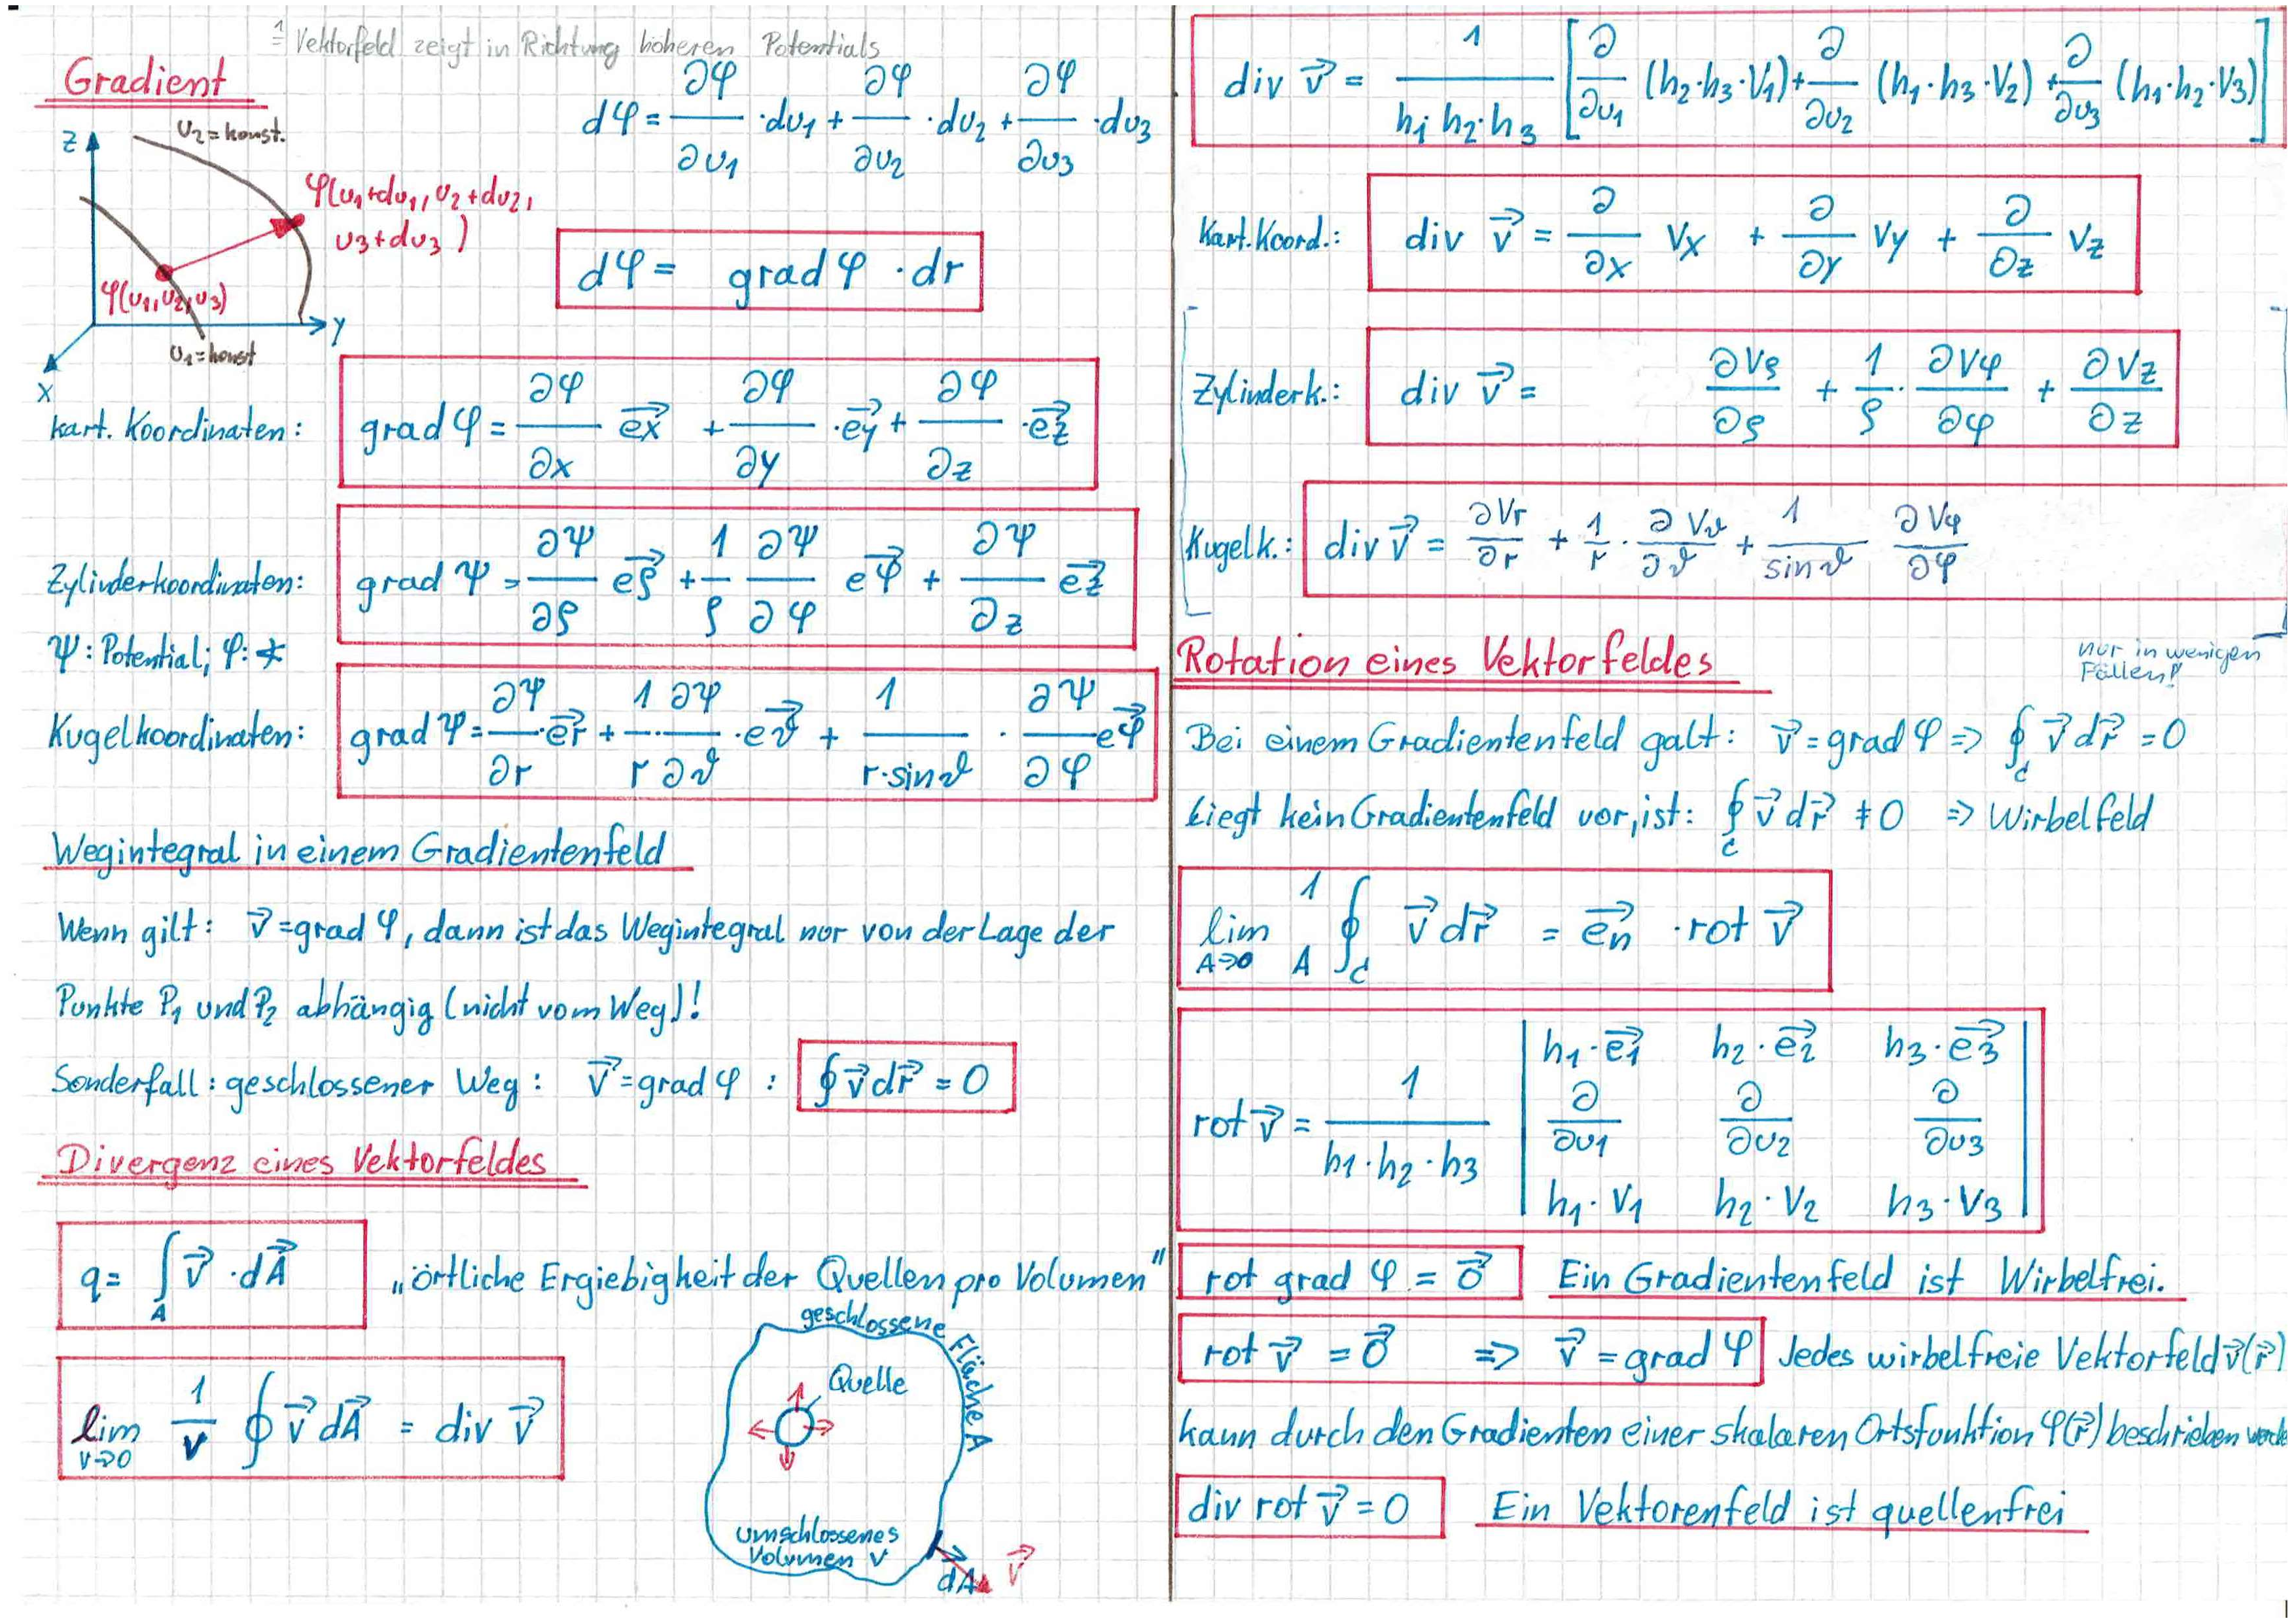 ≙ Vektorfeld zeigt in Richtung höheren Potentials
Gradient
dφ = ∂φ/∂u1 · du1 + ∂φ/∂u2 · du2 + ∂φ/∂u3 · du3
z
u2 = konst.
φ(u1+du1, u2+du2,
u3+du3)
φ(u1, u2, u3)
y
u1 = konst
x
dφ = grad φ · dr
kart. Koordinaten: grad φ = ∂φ/∂x e⃗x + ∂φ/∂y · e⃗y + ∂φ/∂z · e⃗z
Zylinderkoordinaten: grad Ψ = ∂Ψ/∂ρ e⃗ρ + 1/ρ ∂Ψ/∂φ e⃗φ + ∂Ψ/∂z e⃗z
Ψ: Potential; φ: ∡
Kugelkoordinaten: grad Ψ = ∂Ψ/∂r · e⃗r + 1/r · ∂Ψ/∂ϑ · e⃗ϑ + 1/(r·sinϑ) · ∂Ψ/∂φ e⃗φ
Wegintegral in einem Gradientenfeld
Wenn gilt: v⃗ = grad φ, dann ist das Wegintegral nur von der Lage der
Punkte P1 und P2 abhängig (nicht vom Weg)!
Sonderfall: geschlossener Weg: v⃗ = grad φ : ∮ v⃗ dr⃗ = 0
Divergenz eines Vektorfeldes
q = ∫A v⃗ · dA⃗ „örtliche Ergiebigkeit der Quellen pro Volumen"
geschlossene Fläche A
Quelle
lim V→0 1/V ∮ v⃗ dA⃗ = div v⃗
umschlossenes
Volumen V
dA⃗ v⃗
div v⃗ = 1/(h1·h2·h3) [∂/∂u1 (h2·h3·V1) + ∂/∂u2 (h1·h3·V2) + ∂/∂u3 (h1·h2·V3)]
Kart. Koord.: div v⃗ = ∂/∂x Vx + ∂/∂y Vy + ∂/∂z Vz
Zylinderk.: div v⃗ = ∂Vρ/∂ρ + 1/ρ · ∂Vφ/∂φ + ∂Vz/∂z
Kugelk.: div v⃗ = ∂Vr/∂r + 1/r · ∂Vϑ/∂ϑ + 1/sinϑ ∂Vφ/∂φ
nur in wenigen
Fällen!
Rotation eines Vektorfeldes
Bei einem Gradientenfeld galt: v⃗ = grad φ => ∮c v⃗ dr⃗ = 0
Liegt kein Gradientenfeld vor, ist: ∮c v⃗ dr⃗ ≠ 0 => Wirbelfeld
lim A→0 1/A ∮c v⃗ dr⃗ = e⃗n · rot v⃗
h1·e⃗1 h2·e⃗2 h3·e⃗3
rot v⃗ = 1/(h1·h2·h3) ∂/∂u1 ∂/∂u2 ∂/∂u3
h1·V1 h2·V2 h3·V3
rot grad φ = 0⃗ Ein Gradientenfeld ist Wirbelfrei.
rot v⃗ = 0⃗ => v⃗ = grad φ Jedes wirbelfreie Vektorfeld v⃗(r⃗)
kann durch den Gradienten einer skalaren Ortsfunktion φ(r⃗) beschrieben werde
div rot v⃗ = 0 Ein Vektorenfeld ist quellenfrei